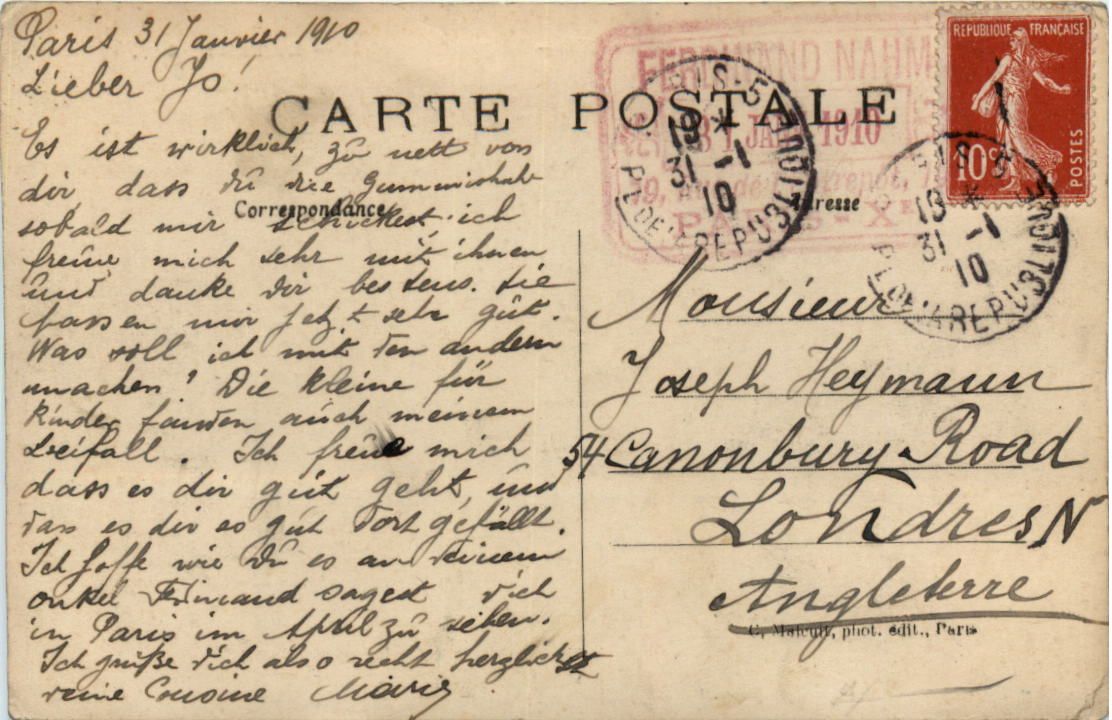 Paris 31 Janvier 1910
Lieber Jo!
CARTE POSTALE
Es ist wirklich, zu nett von
dir, dass du die
sobald mir schickest, ich
freue mich sehr mit ihnen
und danke dir bestens. Sie
passen mir jetzt sehr gut.
Was soll ich mit den andern
machen? Die kleine für
Kinder fanden auch meinen
Beifall. Ich freue mich
dass es dir gut geht, und
dass es dir so gut dort gefällt.
Ich hoffe wie du es an deinem
onkel sagest dich
in Paris im April zu sehen.
Ich grüße dich also recht herzlichst
deine Cousine Marie
Correspondance
Adresse
FERDINAND NAHM
31 JAN 1910
PARIS - Xe
PARIS-5
PL. DE LA REPUBLIQUE
18
31 -1
10
REPUBLIQUE FRANÇAISE
10c
POSTES
PARIS 5
PL. DE LA REPUBLIQUE
18
31 -1
10
Monsieur
Joseph Heymann
54 Canonbury Road
Londres N
Angleterre
phot. édit., Paris